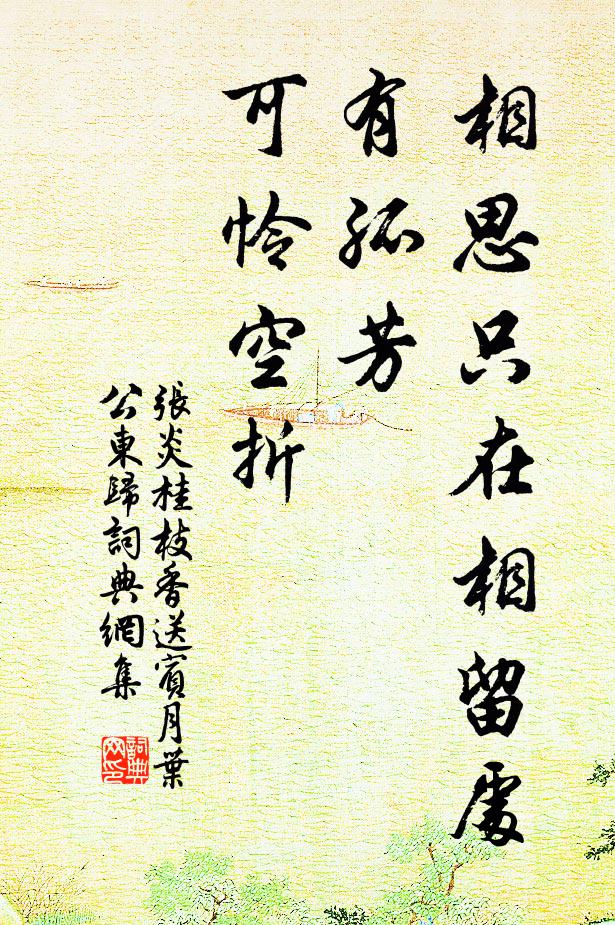 相思只在相留處
有孤芳
可怜空折
張炎桂枝香送賓月葉
公東歸詞典網集
詞典
网印